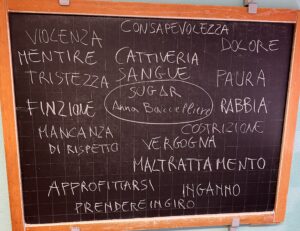 CONSAPEVOLEZZA
VIOLENZA
DOLORE
MENTIRE
CATTIVERIA
TRISTEZZA
SANGUE
PAURA
SUGAR
FINZIONE
RABBIA
Anna Baccelliere
MANCANZA
DI RISPETTO
COSTRIZIONE
VERGOGNA
MALTRATTAMENTO
APPROFITTARSI
INGANNO
PRENDERE IN GIRO